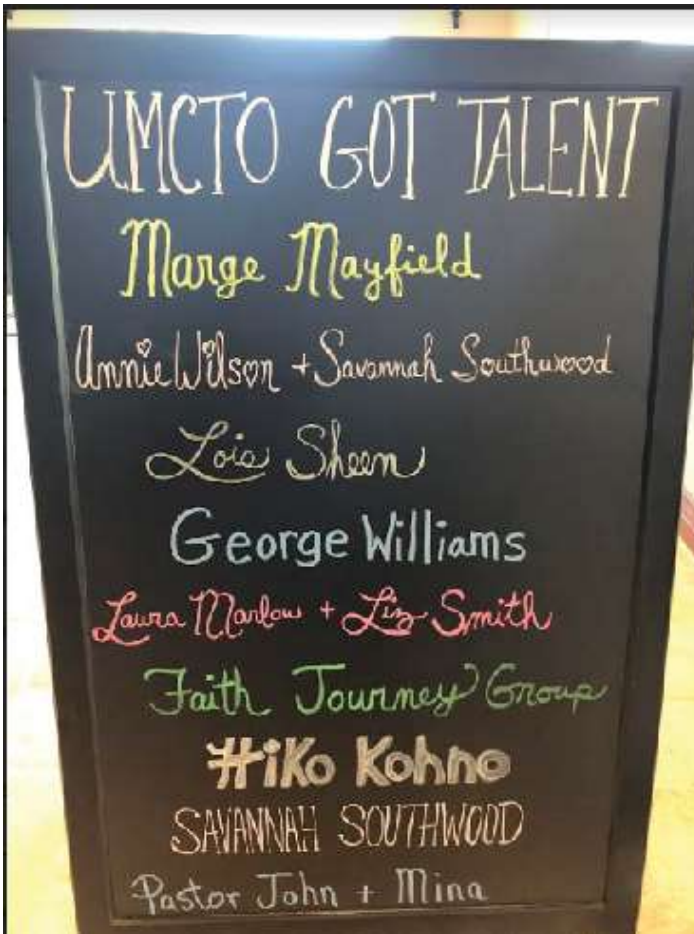 UMCTO GOT TALENT
Marge Mayfield
Annie Wilson + Savannah Southwood
Lois Sheen
George Williams
Laura Marlow + Liz Smith
Faith Journey Group
#iKo Kohno
SAVANNAH SOUTHWOOD
Pastor John + Mina